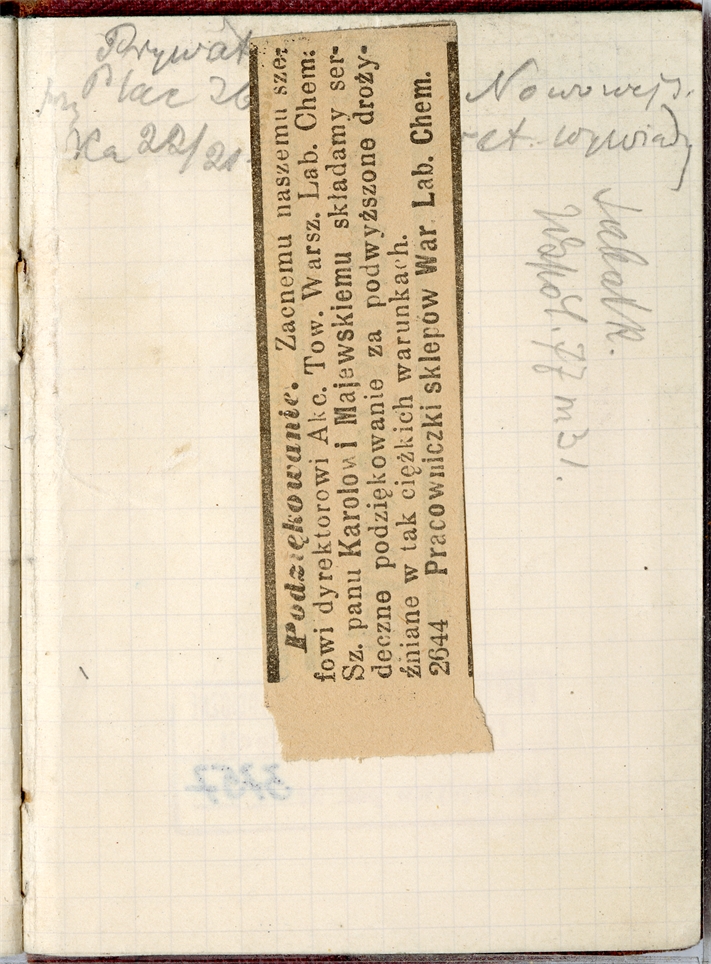 Prywat
Plac 26 Nowowejs.
ka 22/21 wywiady
Podziękowanie. Zacnemu naszemu sze-
fowi dyrektorowi Akc. Tow. Warsz. Lab. Chem.
Sz. panu Karolowi Majewskiemu składamy ser-
deczne podziękowanie za podwyższone droży-
źniane w tak ciężkich warunkach.
2644 Pracowniczki sklepów War. Lab. Chem.
Wspól. 77 m 31.
3757